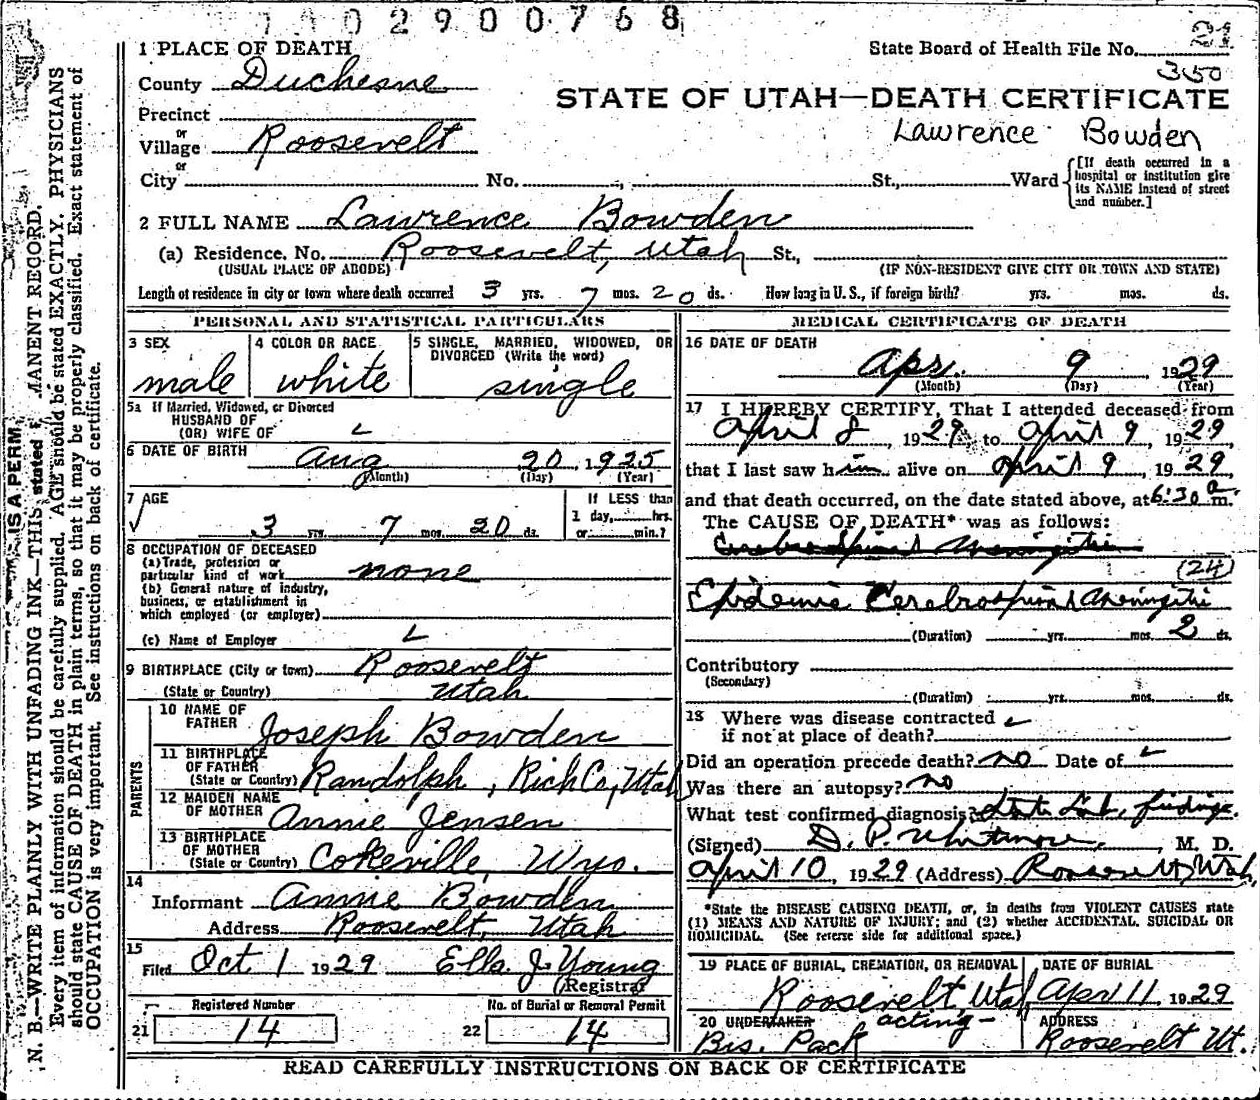 002900768
1 PLACE OF DEATH
State Board of Health File No. 21
350
County Duchesne
STATE OF UTAH—DEATH CERTIFICATE
Precinct
Lawrence Bowden
or
Village Roosevelt
or
City No. , St., Ward
[If death occurred in a hospital or institution give its NAME instead of street and number.]
2 FULL NAME Lawrence Bowden
(a) Residence. No. Roosevelt, Utah St.,
(USUAL PLACE OF ABODE) (IF NON-RESIDENT GIVE CITY OR TOWN AND STATE)
Length of residence in city or town where death occurred 3 yrs. 7 mos. 20 ds. How long in U.S., if foreign birth? yrs. mos. ds.
PERSONAL AND STATISTICAL PARTICULARS
3 SEX
male
4 COLOR OR RACE
white
5 SINGLE, MARRIED, WIDOWED, OR
DIVORCED (Write the word)
single
5a If Married, Widowed, or Divorced
HUSBAND OF
(OR) WIFE OF
6 DATE OF BIRTH Aug 20, 1925
(Month) (Day) (Year)
7 AGE
3 yrs. 7 mos. 20 ds.
If LESS than
1 day, hrs.
or min.?
8 OCCUPATION OF DECEASED
(a) Trade, profession or
particular kind of work none
(b) General nature of industry,
business, or establishment in
which employed (or employer)
(c) Name of Employer
9 BIRTHPLACE (City or town) Roosevelt
(State or Country) Utah
PARENTS
10 NAME OF
FATHER Joseph Bowden
11 BIRTHPLACE
OF FATHER
(State or Country) Randolph, Rich Co, Utah
12 MAIDEN NAME
OF MOTHER Annie Jensen
13 BIRTHPLACE
OF MOTHER
(State or Country) Cokeville, Wyo.
14
Informant Annie Bowden
Address Roosevelt, Utah
15
Filed Oct 1 1929 Ella J. Young
(Registrar
Registered Number
21 14
No. of Burial or Removal Permit
22 14
MEDICAL CERTIFICATE OF DEATH
16 DATE OF DEATH
Apr. 9, 1929
(Month) (Day) (Year)
17 I HEREBY CERTIFY, That I attended deceased from
April 8, 1929, to April 9, 1929,
that I last saw him alive on April 9, 1929
and that death occurred, on the date stated above, at 6:30 a m.
The CAUSE OF DEATH* was as follows:
Cerebrospinal Meningitis
(24)
Epidemic Cerebrospinal Meningitis
(Duration) yrs. mos. 2 ds.
Contributory
(Secondary)
(Duration) yrs. mos. ds.
18 Where was disease contracted
if not at place of death?
Did an operation precede death? no Date of
Was there an autopsy? no
What test confirmed diagnosis? State Lab. findings
(Signed) D. P. Whitmore, M. D.
April 10, 1929 (Address) Roosevelt, Utah
*State the DISEASE CAUSING DEATH, or, in deaths from VIOLENT CAUSES state
(1) MEANS AND NATURE OF INJURY; and (2) whether ACCIDENTAL, SUICIDAL OR
HOMICIDAL. (See reverse side for additional space.)
19 PLACE OF BURIAL, CREMATION, OR REMOVAL
Roosevelt, Utah
DATE OF BURIAL
Apr 11, 1929
20 UNDERTAKER acting —
Bis. Pack
ADDRESS
Roosevelt Ut.
READ CAREFULLY INSTRUCTIONS ON BACK OF CERTIFICATE
N. B.—WRITE PLAINLY WITH UNFADING INK—THIS IS A PERMANENT RECORD.
Every item of information should be carefully supplied. AGE should be stated EXACTLY. PHYSICIANS
should state CAUSE OF DEATH in plain terms, so that it may be properly classified. Exact statement of
OCCUPATION is very important. See instructions on back of certificate.